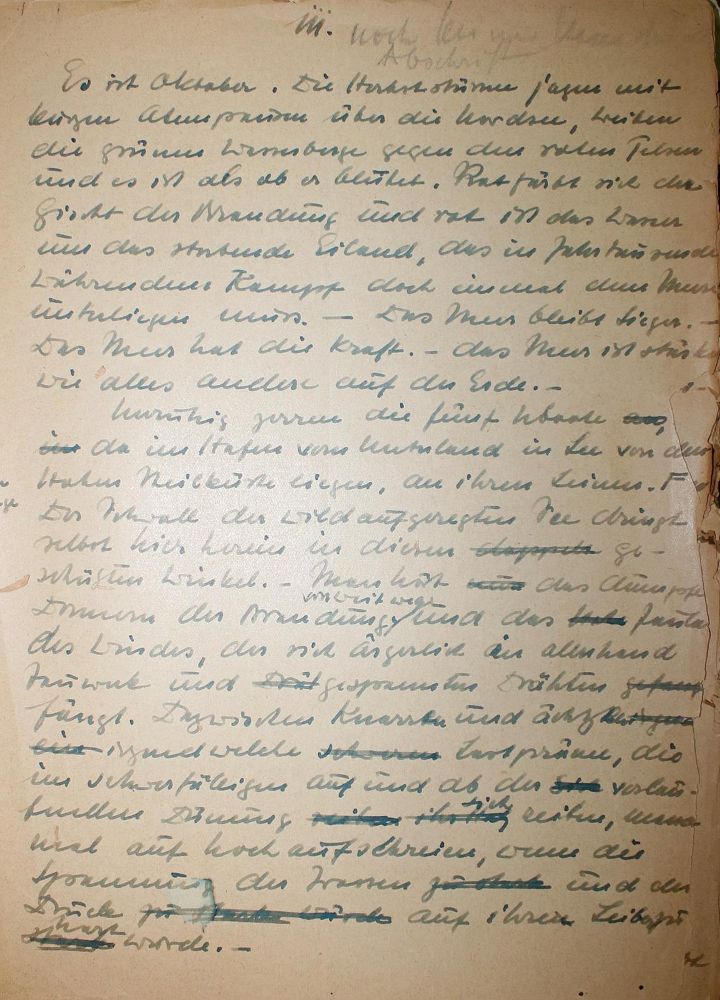 III. noch
Abschrift
Es ist Oktober. Die Herbststürme jagen mit
kurzen Atempausen über die Nordsee, treiben
die grünen Wasserberge gegen den roten Felsen
und es ist als ob er blutet. Rot färbt sich der
Gischt der Brandung und rot ist das Wasser
um das sterbende Eiland, das in Jahrtausende
währendem Kampf doch einmal dem Meere
unterliegen muss. — Das Meer bleibt Sieger. —
Das Meer hat die Kraft. — das Meer ist stärker
wie alles andere auf der Erde. —
Unruhig zerren die fünf Uboote an,
im da im Hafen vom Unterland in Lee von der
Hohen Steilküste liegen, an ihren Leinen.
Der Schwall der wildaufgeregten See dringt
selbst hier herein in diesen doppelt ge-
schützten Winkel. — Man hört nun das dumpfe
von weit weg
Donnern der Brandung, und das Jaulen
des Windes, der sich ärgerlich in allerhand
Tauwerk und Dräh gespannten Drähten gefang
fängt. Dazwischen Knarren und ächzen
ein irgendwelche schweren Lastpräme, die
im schwerfälligen auf und ab der verlau-
sich
fenden Dünung reiben reiben, manch
mal auf hoch aufschreien, wenn die
Spannung der Trossen zu stark und der
Druck zu stark würde auf ihren Leiber zu
stark wurde. —